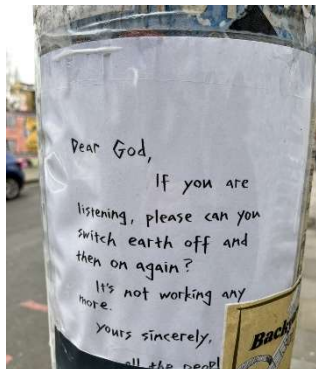 Dear God,
If you are
listening, please can you
switch earth off and
then on again?
It's not working any
more.
Yours sincerely,
all the peopl
Back